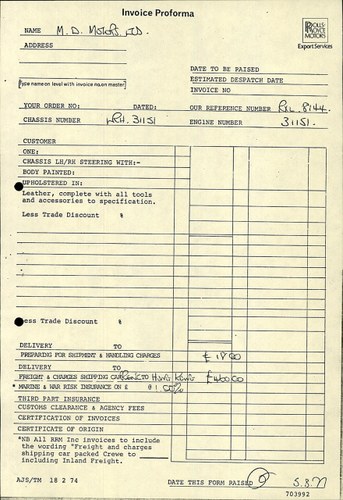 Invoice Proforma
ROLLS
ROYCE
MOTORS
Export Services
NAME M. D. MOTORS LTD.
ADDRESS
DATE TO BE RAISED
ESTIMATED DESPATCH DATE
INVOICE NO
(Type name on level with invoice no. on master)
YOUR ORDER NO: DATED: OUR REFERENCE NUMBER 8144
CHASSIS NUMBER LRH. 31151 ENGINE NUMBER 31151.
CUSTOMER
ONE:
CHASSIS LH/RH STEERING WITH:-
BODY PAINTED:
UPHOLSTERED IN:
Leather, complete with all tools
and accessories to specification.
Less Trade Discount %
Less Trade Discount %
DELIVERY TO
PREPARING FOR SHIPMENT & HANDLING CHARGES £18.00
DELIVERY TO
FREIGHT & CHARGES SHIPPING CAR TO HONG KONG £460.00
* MARINE & WAR RISK INSURANCE ON £ @ %
THIRD PART INSURANCE
CUSTOMS CLEARANCE & AGENCY FEES
CERTIFICATION OF INVOICES
CERTIFICATE OF ORIGIN
*NB All RRM Inc invoices to include
the wording "Freight and charges
shipping car packed Crewe to
including Inland Freight.
AJS/TM 18 2 74 DATE THIS FORM RAISED 5.8.77
703992